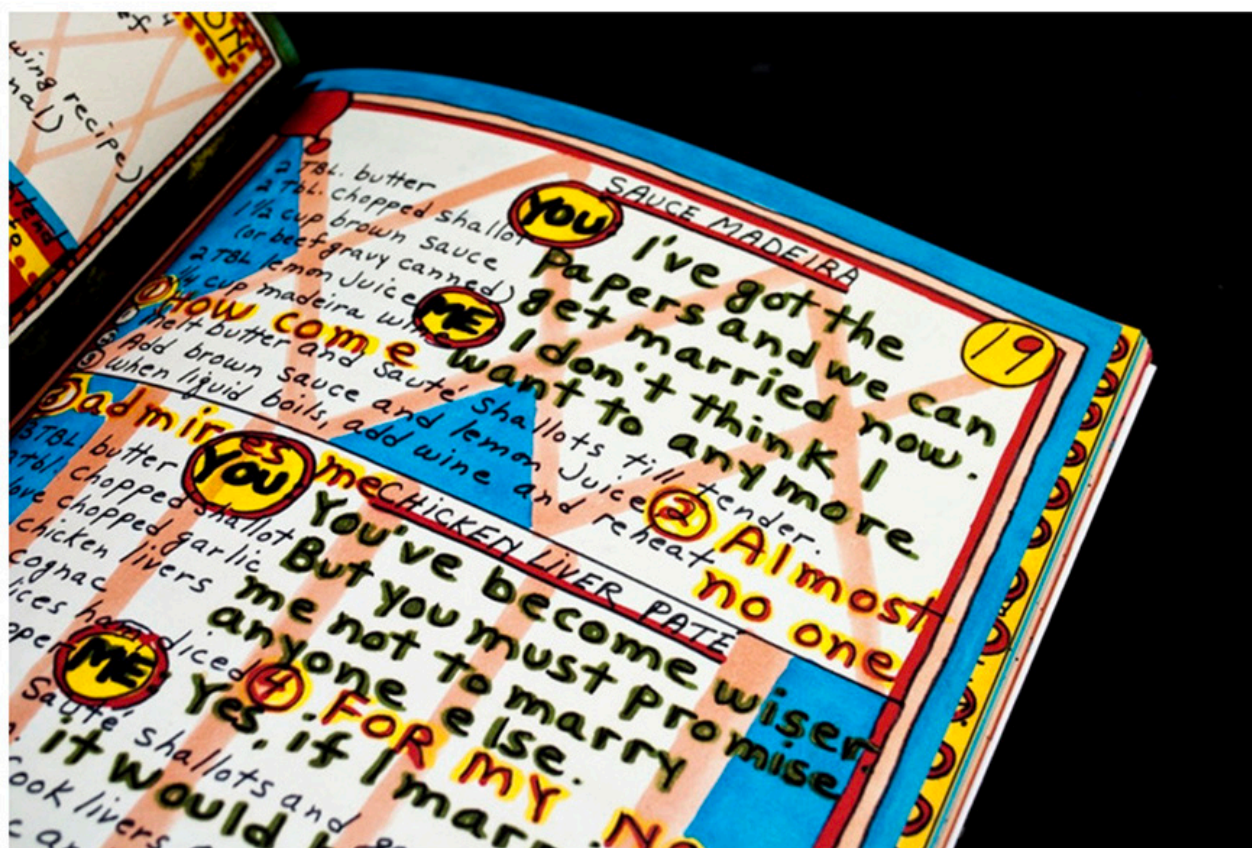 wing recipe)
nal)
SAUCE MADEIRA
19
2 TBL. butter
2 Tbl. chopped shallot
1 1/2 cup brown sauce
(or beef gravy canned)
2 TBL lemon Juice
1/4 cup madeira
① Melt butter and Sauté shallots till tender.
② Add brown sauce and lemon Juice
③ when liquid boils, add wine and reheat
YOU I've got the
Papers and we can
get married now.
ME I don't think I
want to any more
① How come
② Almost
no one
admires
me
CHICKEN LIVER PATÉ
3 TBL. butter
tbl. chopped shallot
chopped garlic
chicken livers
cognac
diced
Sauté shallots and
cook livers
YOU You've become wiser.
But you must promise
me not to marry
anyone else.
ME Yes, if I
it would
④ FOR MY